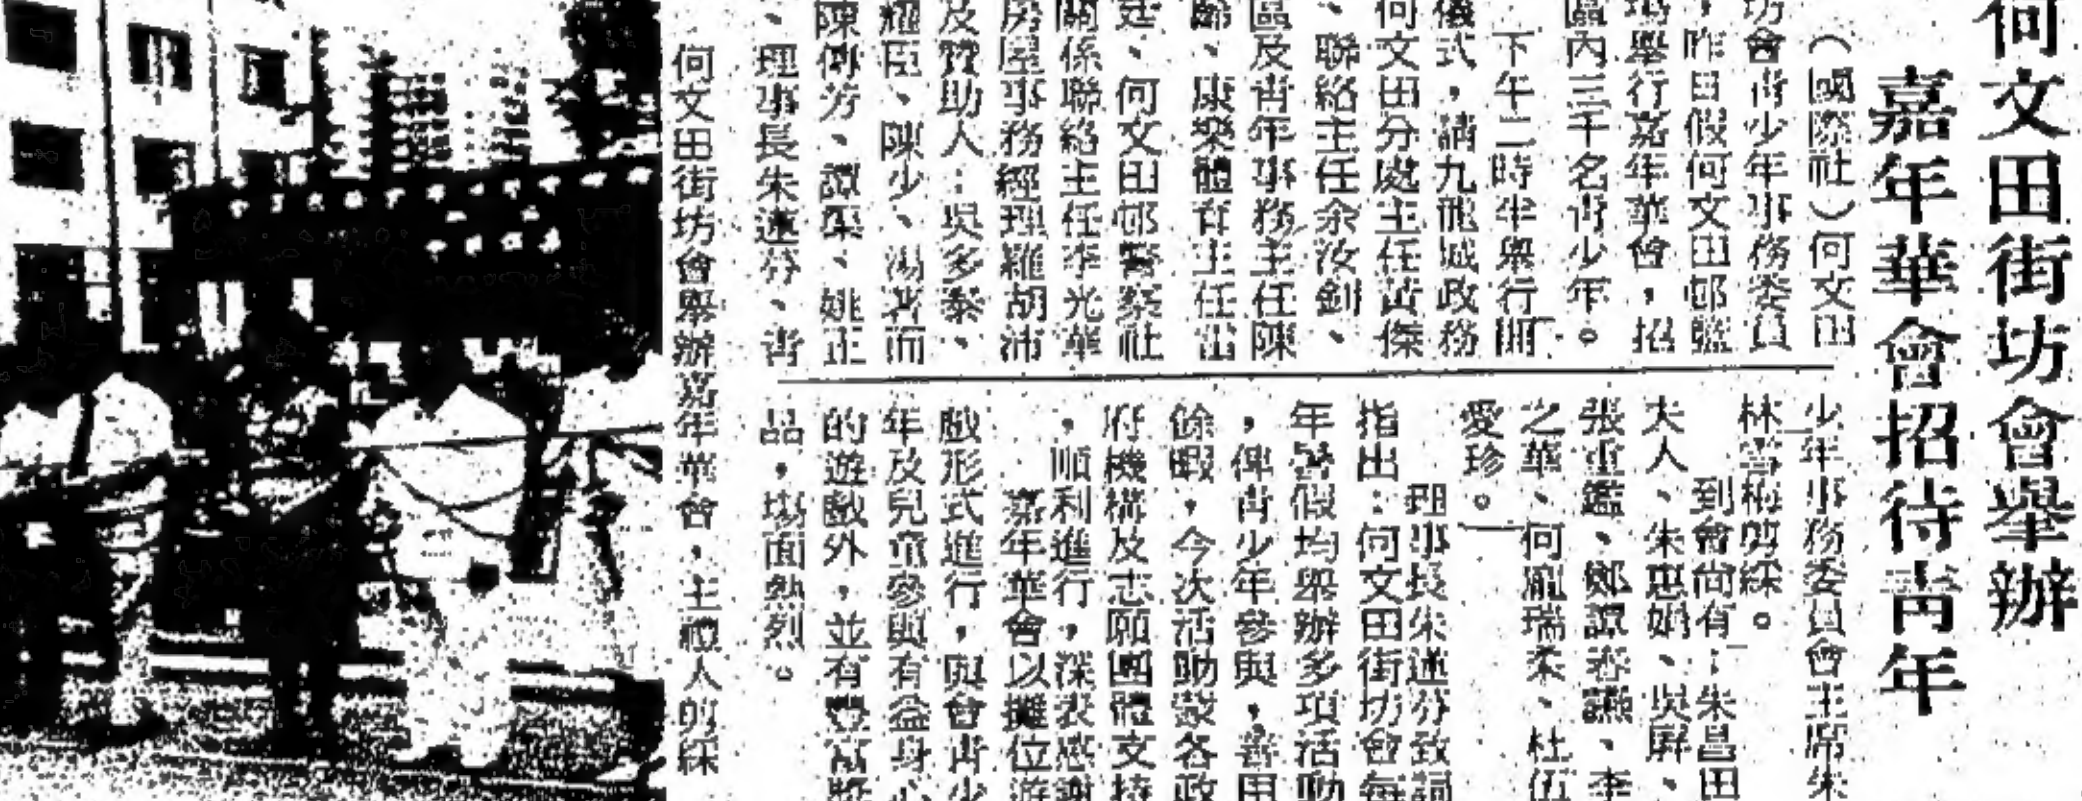 何文田街坊會舉辦
嘉年華會招待青年
（國際社）何文田
坊會青少年事務委員
，昨日假何文田邨籃
場舉行嘉年華會，招
區內三千名青少年。
下午二時半舉行開
儀式，請九龍城政務
何文田分處主任黃傑
、聯絡主任余汝釗、
區及青年事務主任陳
、康樂體育主任
廷、何文田邨警察社
關係聯絡主任李光華
房屋事務經理羅胡沛
及贊助人：吳多泰、
耀臣、陳少、湯著而
陳傳芳、譚渠、姚正
、理事長朱蓮芬、青
少年事務委員會主席朱
林 梅剪綵。
到會尚有：朱昌田
夫人、朱惠娟、吳屏、
張重鑑、鄭譚春讌、李
之華、何龐瑞柔、杜伍
愛珍。
理事長朱蓮芬致詞
指出：何文田街坊會每
年暑假均舉辦多項活動
，俾青少年參與，善用
餘暇，今次活動蒙各政
府機構及志願團體支持
，順利進行，深表感謝
嘉年華會以攤位遊
戲形式進行，與會青少
年及兒童參與有益身心
的遊戲外，並有豐富獎
品，場面熱烈。
何文田街坊會舉辦嘉年華會，主禮人剪綵